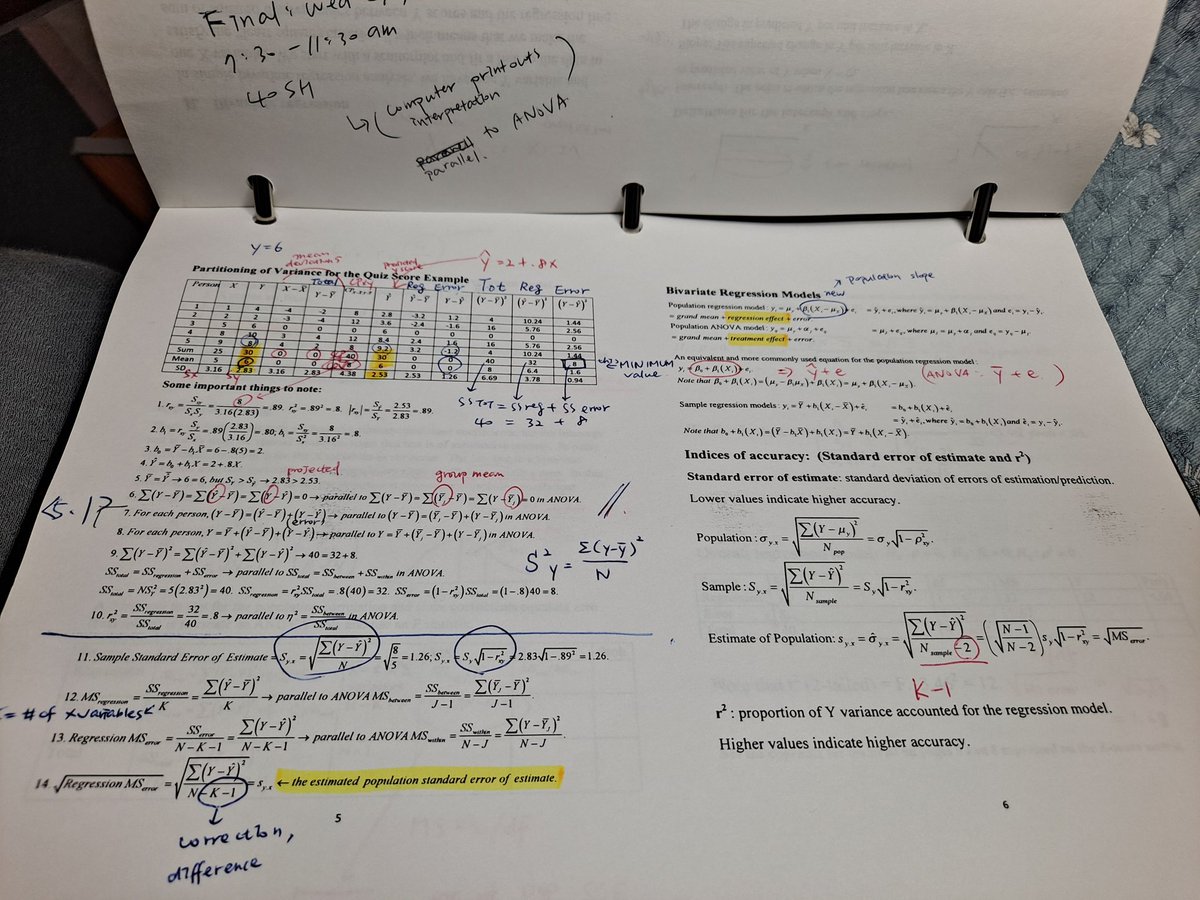 Final: Wed
7:30 - 11:30 am
40 SH
↳ (computer printouts interpretation)
to ANOVA
parallel.
Y = 6
mean deviations
predicted y score
Ŷ = 2 + .8X
Partitioning of Variance for the Quiz Score Example
Total
Reg Error Tot Reg Error
Person X Y X − X̄ Y − Ȳ Ŷ Ŷ − Ȳ Y − Ŷ (Y − Ȳ)² (Ŷ − Ȳ)² (Y − Ŷ)²
1 1 4 -4 -2 8 2.8 -3.2 1.2 4 10.24 1.44
2 3 2 -2 -4 8 4.4 -1.6 -2.4 16 2.56 5.76
Sum 25 30 0 0 40 30 0 0 40 32 8
Mean 5 6 0 0 8 6 0 0 8 6.4 1.6
SD 3.16 2.83 3.16 2.83 4.38 2.53 2.53 1.26 6.69 3.78 0.94
Sx Sy
⇒ MINIMUM value
SS TOT = SS reg + SS error
40 = 32 + 8
Some important things to note:
1. r_xy = S_xy / S_x S_y = 8 / 3.16(2.83) = .89. r²_xy = .89² = .8. |r_xy| = S_ŷ / S_y = 2.53 / 2.83 = .89.
2. b₁ = r_xy S_y / S_x = .89(2.83 / 3.16) = .80; b₁ = S_xy / S²_x = 8 / 3.16² = .8.
3. b₀ = Ȳ − b₁X̄ = 6 − .8(5) = 2.
4. Ŷ = b₀ + b₁X = 2 + .8X.
projected
group mean
5. Ȳ = Ŷ̄ → 6 = 6, but S_y > S_ŷ → 2.83 > 2.53.
6. ∑(Y − Ȳ) = ∑(Ŷ − Ȳ) = ∑(Y − Ŷ) = 0 → parallel to ∑(Y − Ȳ) = ∑(Ȳ_j − Ȳ) = ∑(Y − Ȳ_j) = 0 in ANOVA.
<5.17
7. For each person, (Y − Ȳ) = (Ŷ − Ȳ) + (Y − Ŷ) → parallel to (Y − Ȳ) = (Ȳ_j − Ȳ) + (Y − Ȳ_j) in ANOVA.
(error)
8. For each person, Y = Ȳ + (Ŷ − Ȳ) + (Y − Ŷ) → parallel to Y = Ȳ + (Ȳ_j − Ȳ) + (Y − Ȳ_j) in ANOVA.
9. ∑(Y − Ȳ)² = ∑(Ŷ − Ȳ)² + ∑(Y − Ŷ)² → 40 = 32 + 8.
S²_y = Σ(y − ȳ)² / N
SS_total = SS_regression + SS_error → parallel to SS_total = SS_between + SS_within in ANOVA.
SS_total = NS²_Y = 5(2.83²) = 40. SS_regression = r²_xy SS_total = .8(40) = 32. SS_error = (1 − r²_xy)SS_total = (1 − .8)40 = 8.
10. r²_xy = SS_regression / SS_total = 32 / 40 = .8 → parallel to η² = SS_between / SS_total in ANOVA.
11. Sample Standard Error of Estimate = S_y.x = √(∑(Y − Ŷ)² / N) = √(8 / 5) = 1.26; S_y.x = S_y√(1 − r²_xy) = 2.83√(1 − .89²) = 1.26.
12. MS_regression = SS_regression / K = ∑(Ŷ − Ȳ)² / K → parallel to ANOVA MS_between = SS_between / J − 1 = ∑(Ȳ_j − Ȳ)² / J − 1.
= # of x variables K
13. Regression MS_error = SS_error / N − K − 1 = ∑(Y − Ŷ)² / N − K − 1 → parallel to ANOVA MS_within = SS_within / N − J = ∑(Y − Ȳ_j)² / N − J.
14. √Regression MS_error = √(∑(Y − Ŷ)² / N − K − 1) = s_y.x ← the estimated population standard error of estimate.
correction,
difference
5
population slope
Bivariate Regression Models new
Population regression model: y_i = μ_y + β₁(X_i − μ_x) + e_i = ŷ_i + e_i, where ŷ_i = μ_y + β₁(X_i − μ_x) and e_i = y_i − ŷ_i.
= grand mean + regression effect + error.
Population ANOVA model: y_ij = μ_y + α_j + e_ij = μ_j + e_ij, where μ_j = μ_y + α_j and e_ij = y_ij − μ_j.
= grand mean + treatment effect + error.
An equivalent and more commonly used equation for the population regression model:
y_i = β₀ + β₁(X_i) + e_i. ⇒ Ŷ + e (ANOVA: Ȳ + e.)
Note that β₀ + β₁(X_i) = (μ_y − β₁μ_x) + β₁(X_i) = μ_y + β₁(X_i − μ_x).
Sample regression models: y_i = Ȳ + b₁(X_i − X̄) + ê_i = b₀ + b₁(X_i) + ê_i
= ŷ_i + ê_i, where ŷ_i = b₀ + b₁(X_i) and ê_i = y_i − ŷ_i.
Note that b₀ + b₁(X_i) = (Ȳ − b₁X̄) + b₁(X_i) = Ȳ + b₁(X_i − X̄).
Indices of accuracy: (Standard error of estimate and r²)
Standard error of estimate: standard deviation of errors of estimation/prediction.
Lower values indicate higher accuracy.
Population: σ_y.x = √(∑(Y − μ_y)² / N_pop) = σ_y√(1 − ρ²_xy).
Sample: S_y.x = √(∑(Y − Ŷ)² / N_sample) = S_y√(1 − r²_xy).
Estimate of Population: s_y.x = σ̂_y.x = √(∑(Y − Ŷ)² / N_sample − 2) = (√(N − 1 / N − 2)) s_y√(1 − r²_xy) = √MS_error.
K-1
r²: proportion of Y variance accounted for the regression model.
Higher values indicate higher accuracy.
6